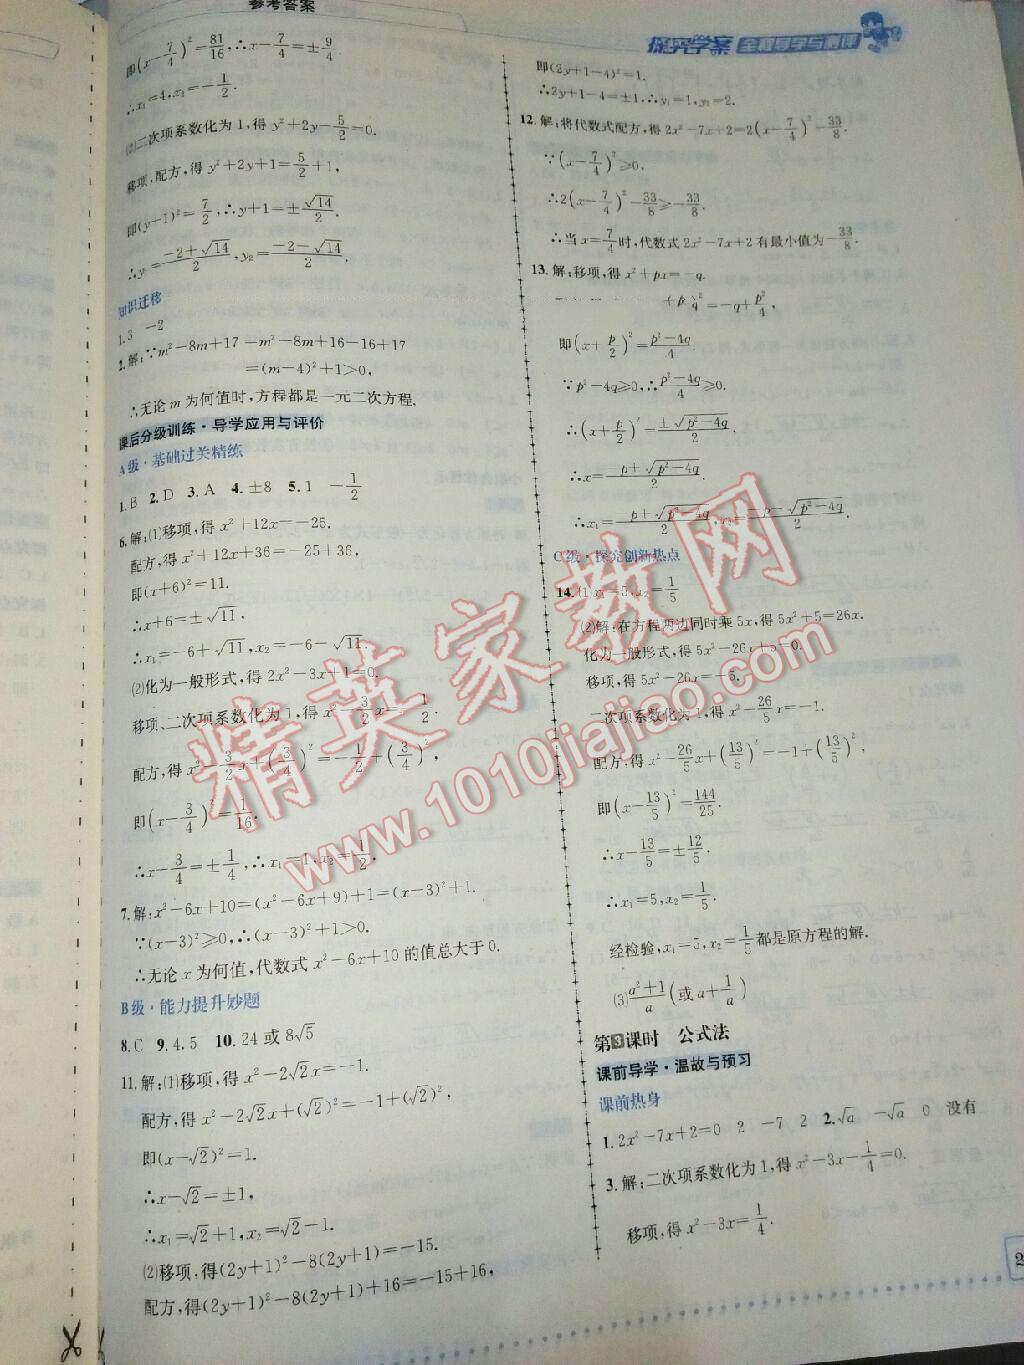 参考答案
探究学案 全程导学与测评
即(x-7/4)²=81/16,∴x-7/4=±9/4
∴x₁=4,x₂=-1/2.
(2)二次项系数化为1,得 y²+2y-5/2=0.
移项,配方,得 y²+2y+1=5/2+1,
即(y+1)²=7/2,∴y+1=±√14/2.
∴y₁=(-2+√14)/2,y₂=(-2-√14)/2.
知识迁移
1.3 -2
2.解:∵m²-8m+17=m²-8m+16-16+17
=(m-4)²+1>0,
∴无论m为何值时,方程都是一元二次方程.
课后分级训练·导学应用与评价
A级·基础过关精练
1.B 2.D 3.A 4.±8 5.1 -1/2
6.解:(1)移项,得 x²+12x=-25.
配方,得 x²+12x+36=-25+36,
即(x+6)²=11.
∴x+6=±√11,
∴x₁=-6+√11,x₂=-6-√11.
(2)化为一般形式,得 2x²-3x+1=0.
移项、二次项系数化为1,得 x²-3/2x=-1/2.
配方,得 x²-3/2x+(3/4)²=-1/2+(3/4)²,
即(x-3/4)²=1/16.
∴x-3/4=±1/4,∴x₁=1,x₂=1/2.
7.解:x²-6x+10=(x²-6x+9)+1=(x-3)²+1.
∵(x-3)²≥0,∴(x-3)²+1>0.
∴无论x为何值,代数式 x²-6x+10的值总大于0.
B级·能力提升妙题
8.C 9.4.5 10.24或8√5
11.解:(1)移项,得 x²-2√2x=-1.
配方,得 x²-2√2x+(√2)²=-1+(√2)²,
即(x-√2)²=1.
∴x-√2=±1,
∴x₁=√2+1,x₂=√2-1.
(2)移项,得(2y+1)²-8(2y+1)=-15.
配方,得(2y+1)²-8(2y+1)+16=-15+16,
即(2y+1-4)²=1.
∴2y+1-4=±1,∴y₁=1,y₂=2.
12.解:将代数式配方,得 2x²-7x+2=2(x-7/4)²-33/8.
∵(x-7/4)²≥0,
∴2(x-7/4)²-33/8≥-33/8.
∴当x=7/4时,代数式2x²-7x+2有最小值为-33/8.
13.解:移项,得 x²+px=-q.
)²=-q+p²/4,
即(x+p/2)²=(p²-4q)/4.
∵p²-4q≥0,∴(p²-4q)/4≥0.
∴(x+p/2)²=±√(p²-4q)/2.
∴x=(-p±√(p²-4q))/2.
∴x₁=(-p+√(p²-4q))/2,x₂=(-p-√(p²-4q))/2.
C级·探究创新热点
14.(1)x₁=5,x₂=1/5
(2)解:在方程两边同时乘5x,得 5x²+5=26x.
化为一般形式,得 5x²-26x+5=0.
移项,得 5x²-26x=-5.
二次项系数化为1,得 x²-26/5x=-1.
配方,得 x²-26/5x+(13/5)²=-1+(13/5)²,
即(x-13/5)²=144/25.
∴x-13/5=±12/5.
∴x₁=5,x₂=1/5.
经检验,x₁=5,x₂=1/5都是原方程的解.
(3)(a²+1)/a(或a+1/a)
第3课时 公式法
课前导学·温故与预习
课前热身
1.2x²-7x+2=0 2 -7 2 2.√a -√a 0 没有
3.解:二次项系数化为1,得 x²-3x-1/4=0.
移项,得 x²-3x=1/4.
精英家教网
www.1010jiajiao.com